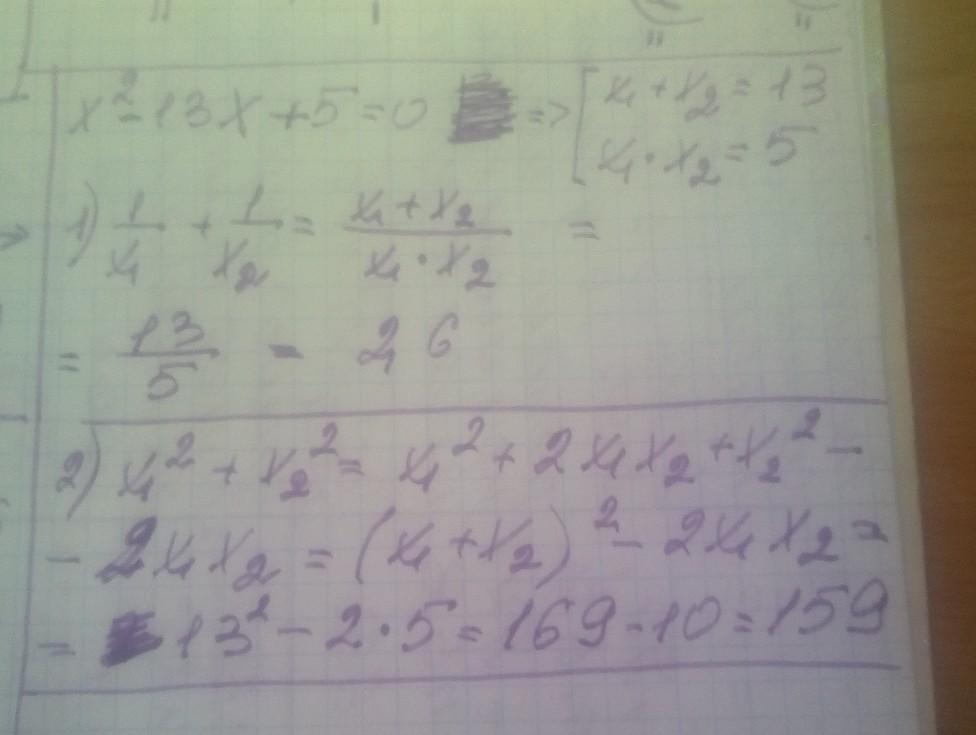 x² - 13x + 5 = 0 => [ x₁ + x₂ = 13
x₁ · x₂ = 5
1) 1/x₁ + 1/x₂ = (x₁ + x₂)/(x₁ · x₂) =
= 13/5 = 2 6
2) x₁² + x₂² = x₁² + 2x₁x₂ + x₂² -
- 2x₁x₂ = (x₁ + x₂)² - 2x₁x₂ =
= 13² - 2 · 5 = 169 - 10 = 159